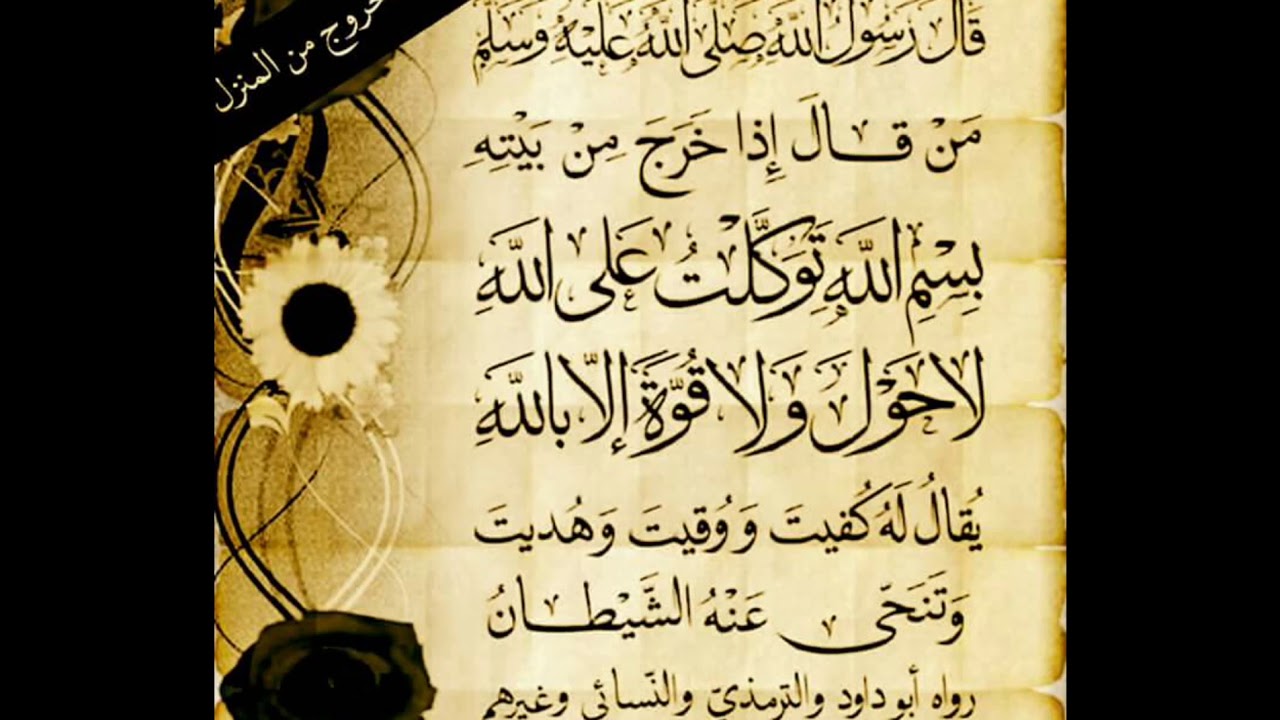 خروج من المنزل
قَالَ رَسُولُ اللَّهِ صَلَّى اللَّهُ عَلَيْهِ وَسَلَّمَ
مَنْ قَالَ إِذا خَرَجَ مِنْ بَيْتِهِ
بِسْمِ اللَّهِ تَوَكَّلْتُ عَلى اللَّهِ
لا حَوْلَ وَلا قُوَّةَ إلّا باللَّهِ
يُقالُ لَهُ كُفيتَ وَ وُقيتَ وَهُديتَ
وَتَنَحّى عَنْهُ الشَّيْطانُ
رواه أبو داود والترمذيّ والنّسائي وغيرهم